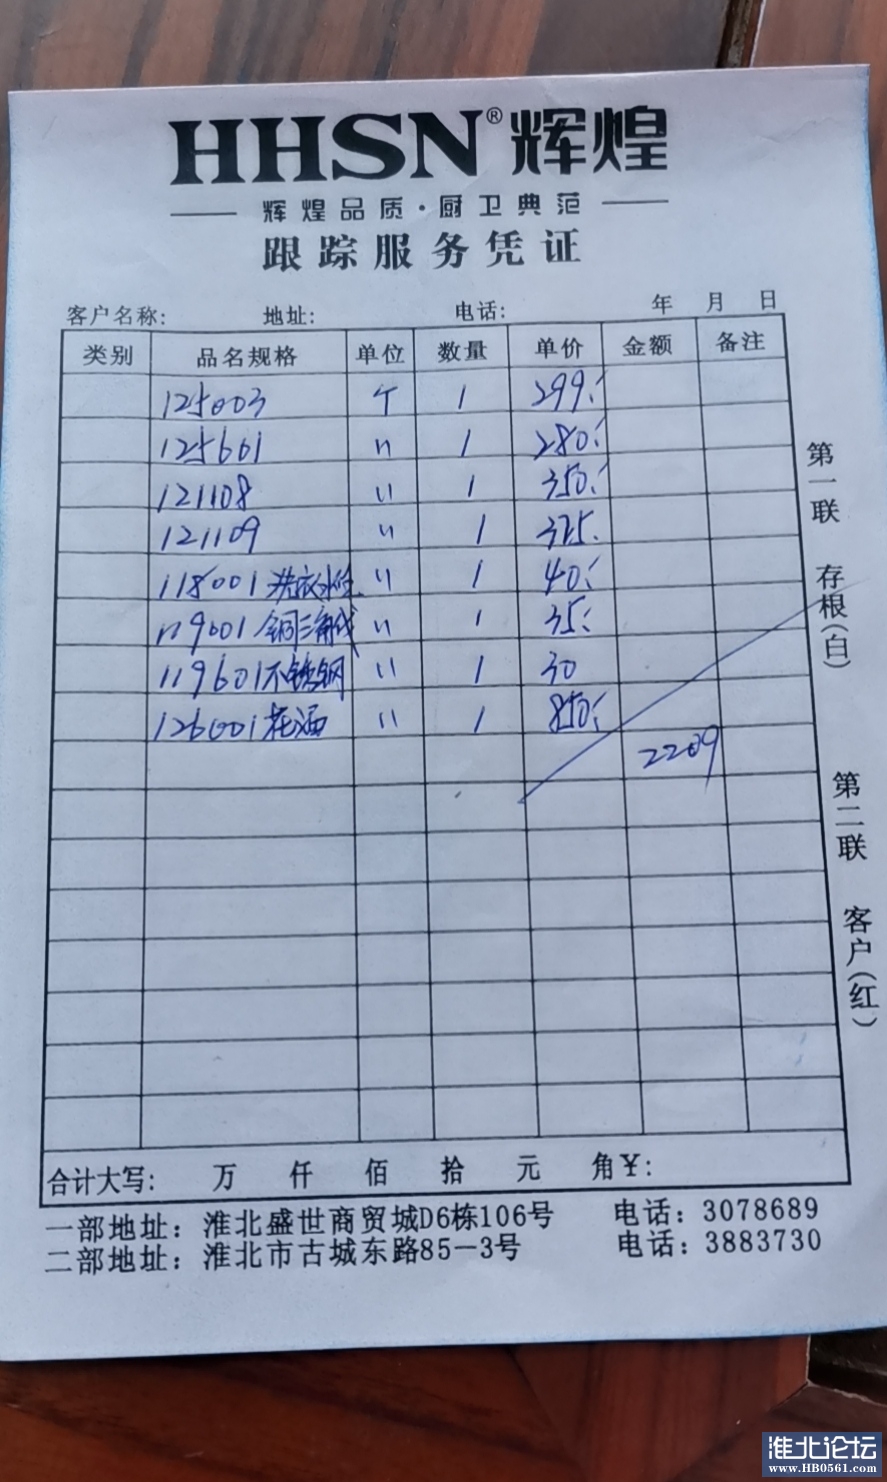 HHSN®辉煌
辉煌品质·厨卫典范
跟踪服务凭证
客户名称: 地址: 电话: 年 月 日
类别 品名规格 单位 数量 单价 金额 备注
125003 个 1 299.
125661 〃 1 280.
121108 〃 1 350.
121109 〃 1 325.
118001 洗衣水 〃 1 40.
119001 铜三角 〃 1 35.
119601 不锈钢 〃 1 30
126001 花洒 〃 1 850.
2209
合计大写: 万 仟 佰 拾 元 角 ¥:
一部地址: 淮北盛世商贸城D6栋106号 电话: 3078689
二部地址: 淮北市古城东路85-3号 电话: 3883730
第一联 存根(白)
第二联 客户(红)
淮北论坛
www.HB0561.com